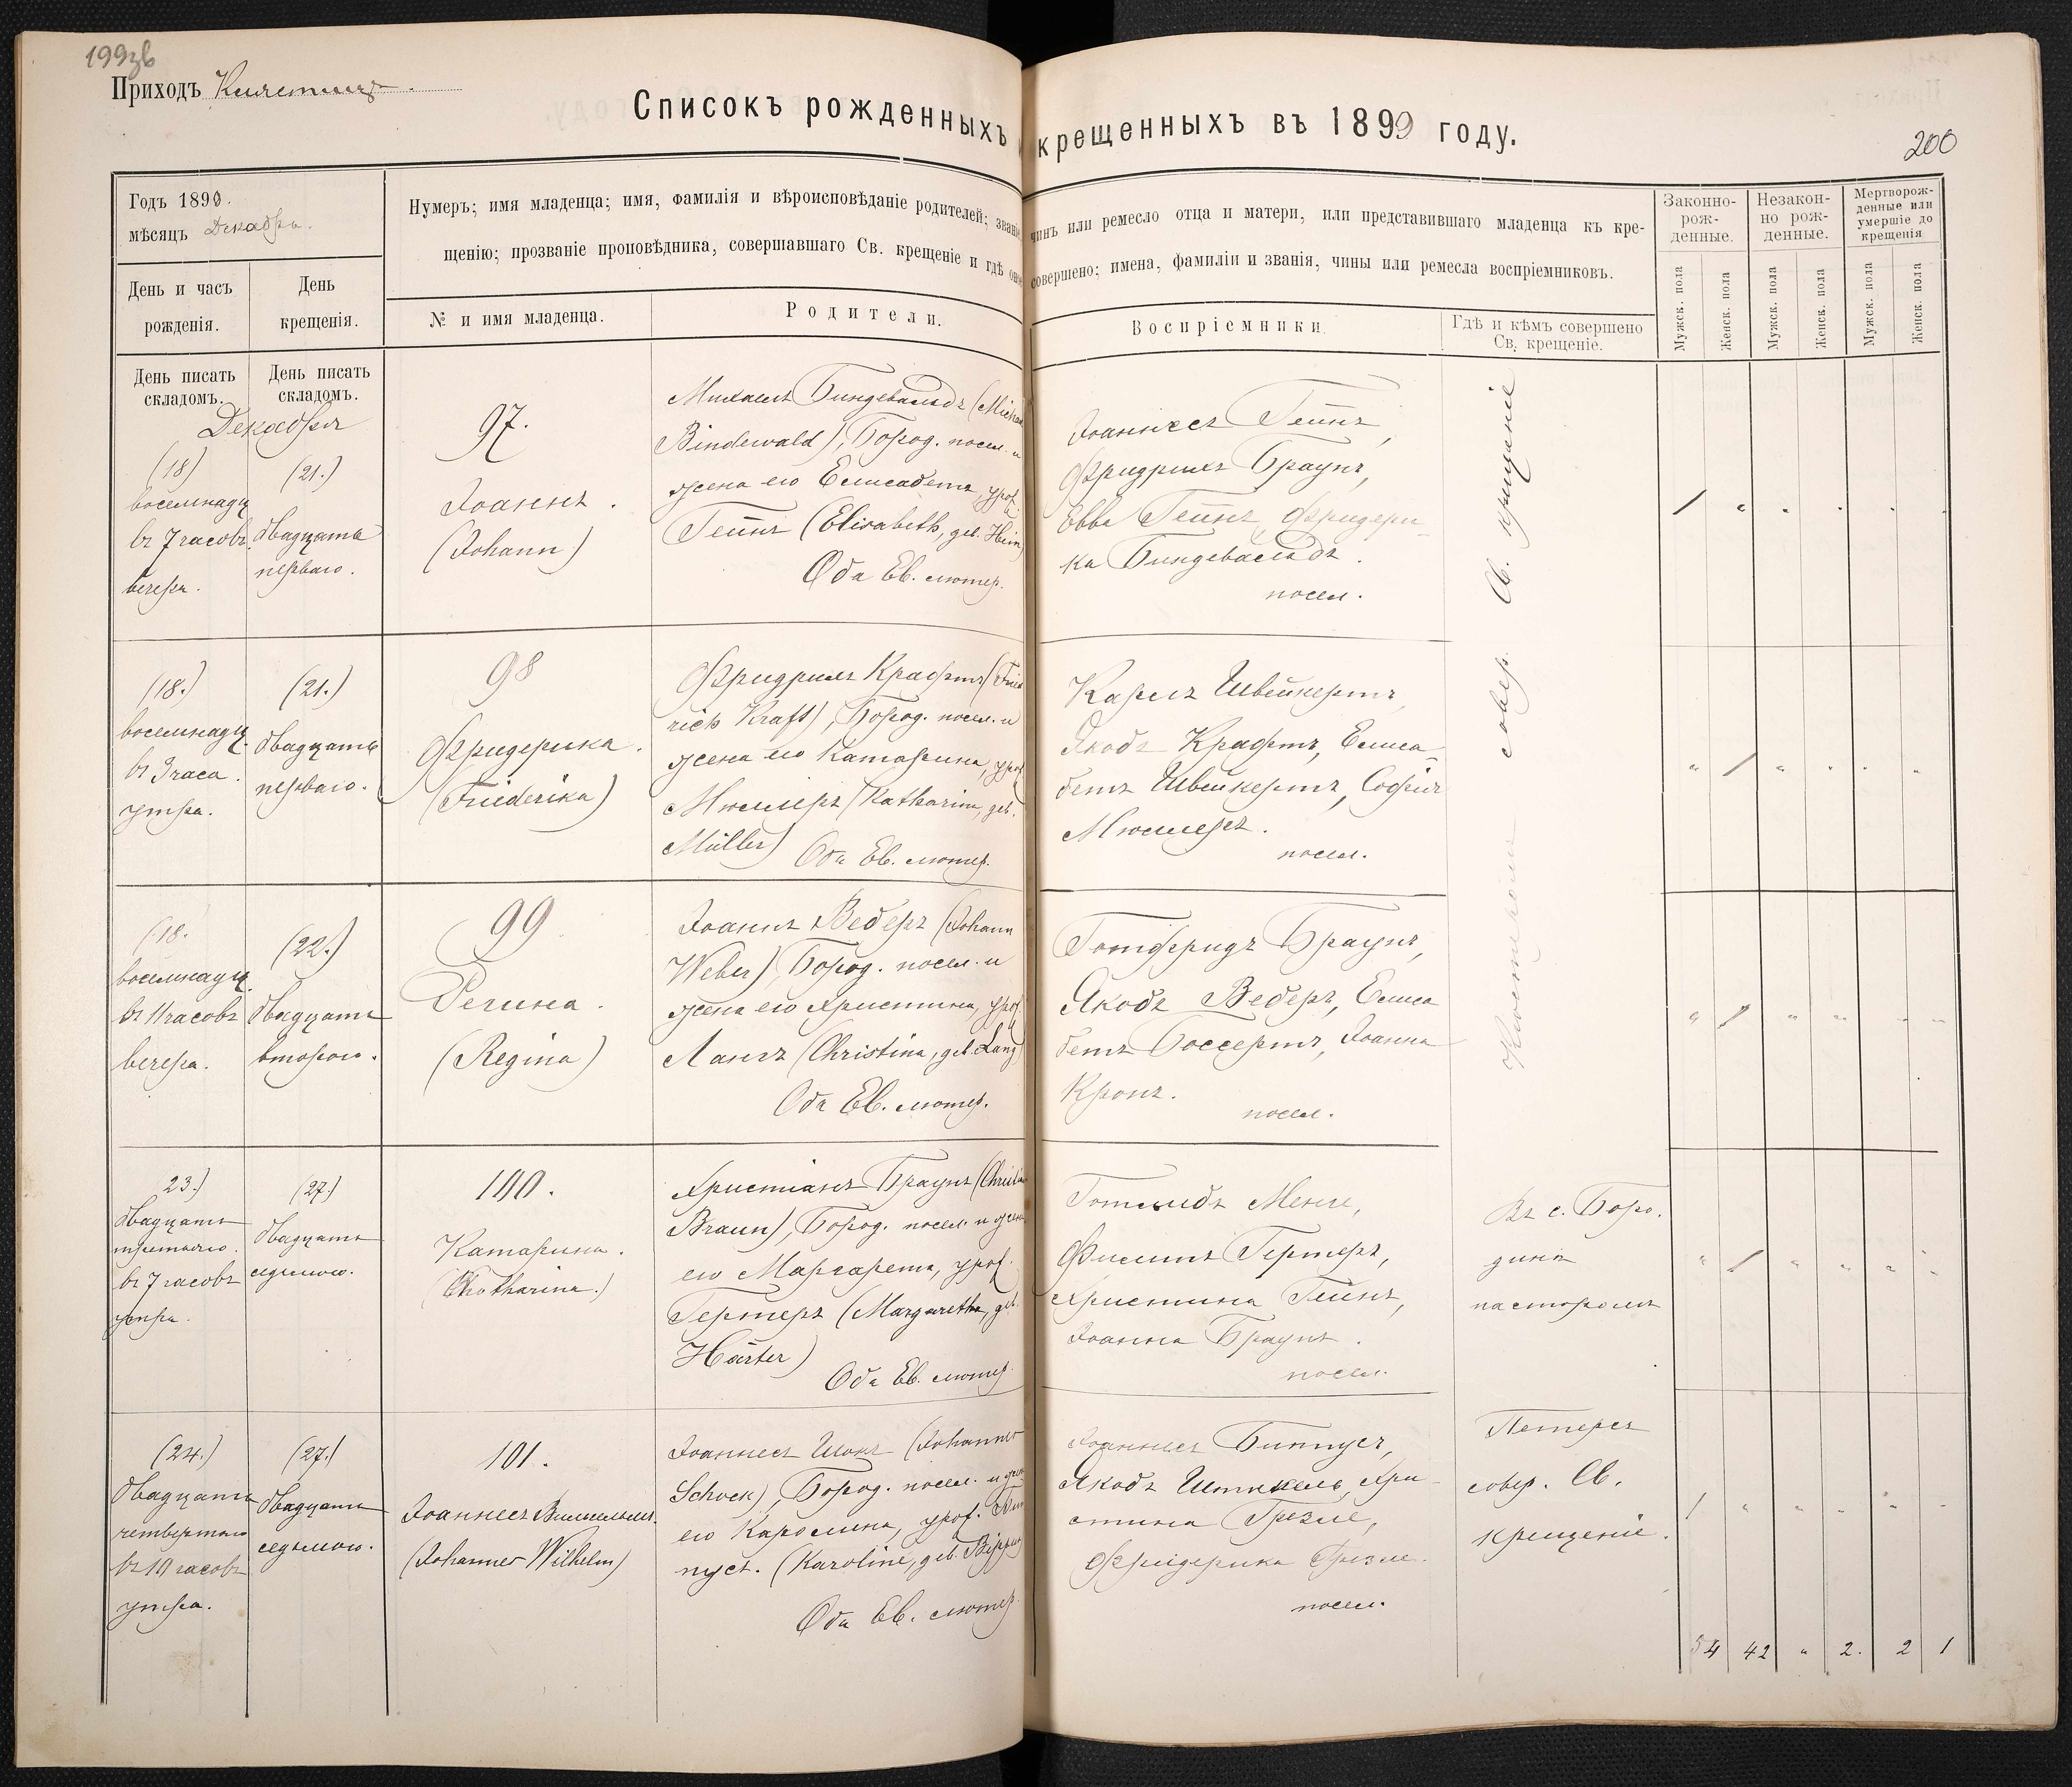 199зв
Приходъ Кляститz.
Списокъ рожденныхъ
крещенныхъ въ 1899 году.
200
Годъ 1899.
мѣсяцъ Декабрь.
День и часъ
рожденія.
День
крещенія.
День писать
складомъ.
День писать
складомъ.
Нумеръ; имя младенца; имя, фамилія и вѣроисповѣданіе родителей; званіе
щенію; прозваніе проповѣдника, совершавшаго Св. крещеніе и гдѣ оное
№ и имя младенца.
Родители.
чинъ или ремесло отца и матери, или представившаго младенца къ кре-
совершено; имена, фамиліи и званія, чины или ремесла воспріемниковъ.
Воспріемники.
Гдѣ и кѣмъ совершено
Св. крещеніе.
Законно-
рож-
денные.
Незакон-
но рож-
денные.
Мертворож-
денные или
умершіе до
крещенія
Мужск. пола
Женск. пола
Мужск. пола
Женск. пола
Мужск. пола
Женск. пола
Декабря
(18)
восемнадц
въ 7 часовъ
вечера.
(21.)
двадцать
перваго.
97.
Іоаннъ.
(Johann)
Михаелъ Биндевальдъ (Michael
Bindewald), Бород. посел. и
жена его Елисабета, урож.
Гейнъ (Elisabeth, geb. Hein)
Оба Ев. лютер.
Іоаннесъ Гейнъ,
Фридрихъ Браунъ,
Евва Гейнъ, Фридери-
ка Биндевальдъ.
посел.
(18.)
восемнадц.
въ 3 часа.
утра.
(21.)
двадцать
перваго.
98
Фридерика.
(Friederika)
Фридрихъ Крафтъ (Fried
rich Kraft), Бород. посел. и
жена его Катарина, урож.
Мюллеръ (Katharina, geb.
Müller) Оба Ев. лютер.
Карлъ Швейкертъ,
Якобъ Крафтъ, Елиса-
бетъ Швейкертъ, Софія
Мюллеръ.
посел.
(18.
восемнадц.
въ 11 часовъ
вечера.
(22.)
двадцать
второго.
99
Регина.
(Regina)
Іоаннъ Веберъ (Johann
Weber), Бород. посел. и
жена его Христина, урож.
Лангъ (Christina, geb. Lang)
Оба Ев. лютер.
Готфридъ Браунъ,
Якобъ Веберъ, Елиса
бетъ Боссертъ, Іоанна
Кронъ.
посел.
Кистеромъ совер. Св. крещеніе
23.)
двадцать
третьяго.
въ 7 часовъ
утра.
(27.)
двадцать
седьмого.
100.
Катарина.
(Katharina.)
Христіанъ Браунъ (Christian
Braun), Бород. посел. и жена
его Маргарета, урож.
Гертеръ (Margaretha, geb.
Härter) Оба Ев. лютер.
Готлибъ Менге,
Филиппъ Гертеръ,
Христина Гейнъ,
Іоанна Браунъ.
посел.
Въ с. Боро.
динѣ
пасторомъ
(24.)
двадцать
четвертаго
въ 10 часовъ
утра.
(27.)
двадцать
седьмого.
101.
Іоаннесъ Вильгельмъ.
(Johannes Wilhelm)
Іоаннесъ Шокъ (Johannes
Schock), Бород. посел. и жена
его Каролина, урож. Бип
пусъ. (Karoline, geb. Bippus)
Оба Ев. лютер.
Іоаннесъ Биппусъ,
Якобъ Штикель, Хри-
стина Грезле,
Фридерика Грезле.
посел.
Петерсъ
совер. Св.
крещеніе.
54 42 " 2. 2 1